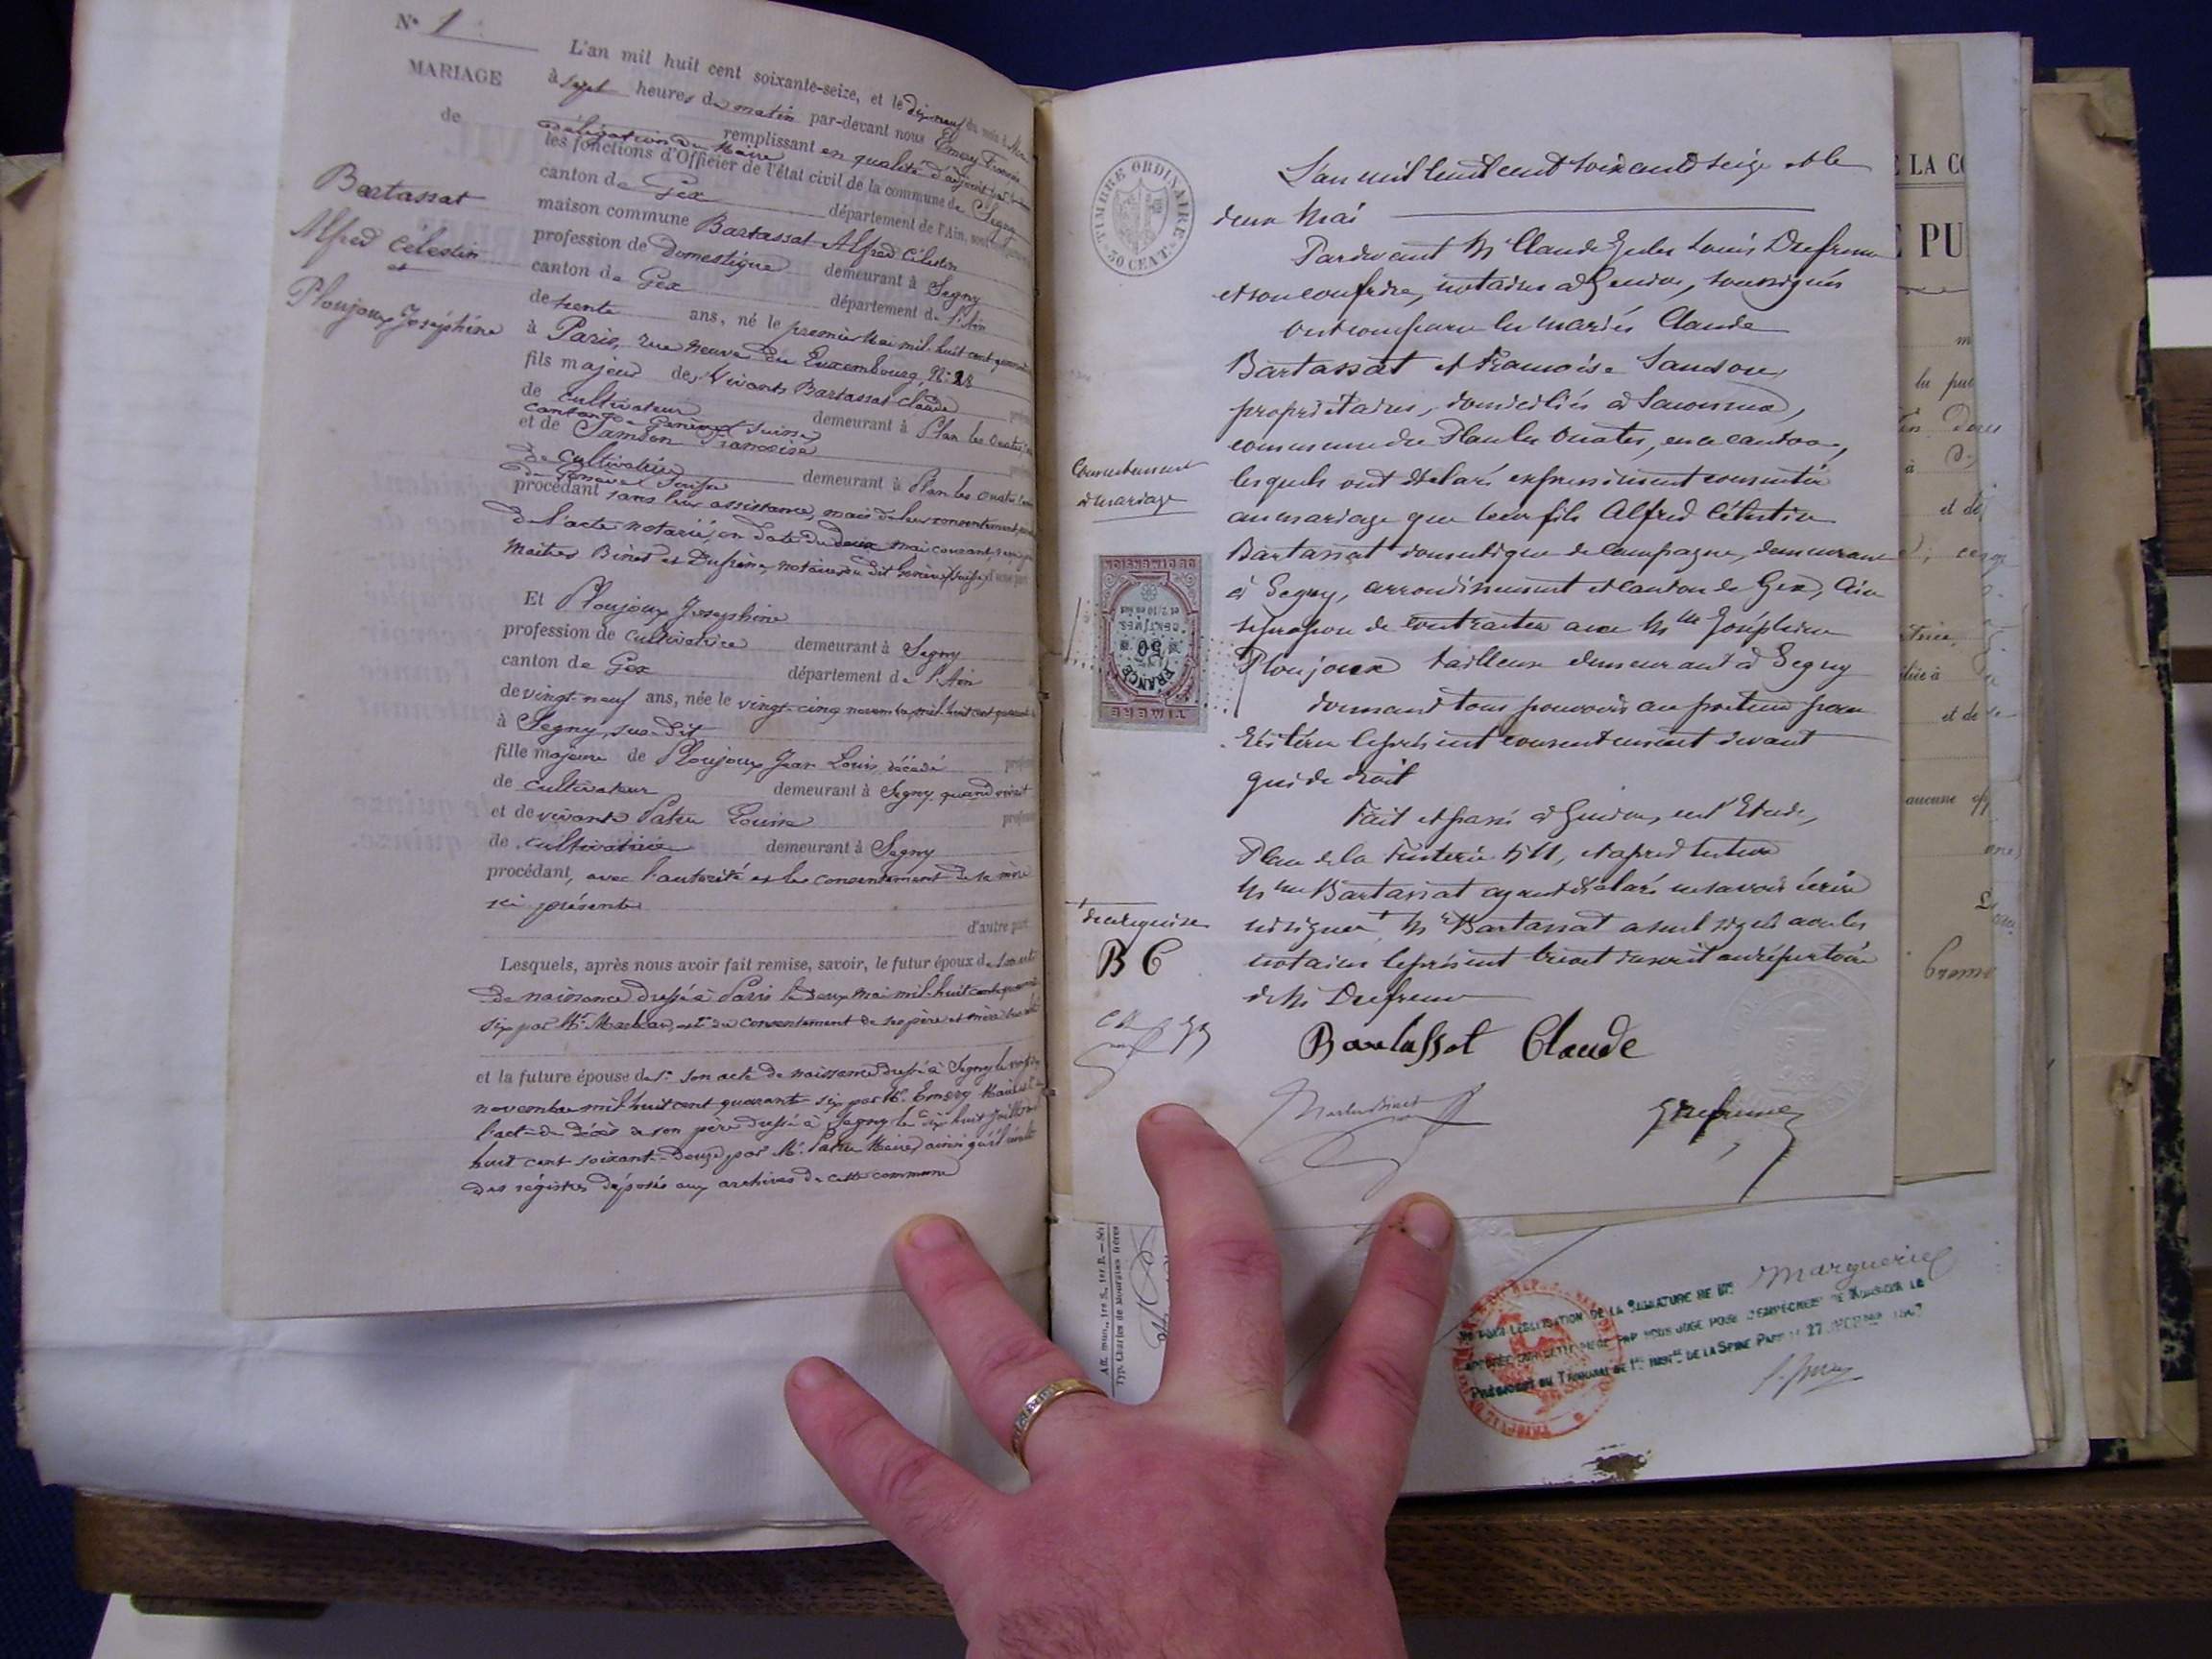 N° 1
MARIAGE
de
Bartassat
Alfred Célestin
et
Ploujoux Joséphine
L'an mil huit cent soixante-seize, et le dix neuf du mois de Mai
à sept heures du matin par-devant nous Emery
remplissant en qualité d'adjoint par
délégation du Maire
les fonctions d'Officier de l'état civil de la commune de Segny
canton de Gex département de l'Ain, sont
maison commune Bartassat Alfred Célestin
profession de Domestique demeurant à Segny
canton de Gex département de l'Ain
de trente ans, né le premier Mai mil huit cent
à Paris, rue neuve du Luxembourg, N° 28
fils majeur des vivants Bartassat Claude
de cultivateur demeurant à Plan les Ouates
canton de Genève Suisse
et de Samson Francoise
de cultivatrice demeurant à Plan les Ouates
de Genève Suisse
procédant sans leur assistance, mais de leur consentement
de l'acte notarié, en date du deux mai courant
Maîtres Binet et Dufresne, notaires au dit Genève (Suisse) d'une part
Et Ploujoux Josephine
profession de cultivatrice demeurant à Segny
canton de Gex département de l'Ain
de vingt-neuf ans, née le vingt-cinq novembre mil huit cent quarante
à Segny, sus-dit
fille majeure de Ploujoux Jean Louis, décédé
de cultivateur demeurant à Segny, quand vivait
et de vivante Patru Louise
de cultivatrice demeurant à Segny
procédant, avec l'autorité et le consentement de sa mère
ici présente
d'autre part
Lesquels, après nous avoir fait remise, savoir, le futur époux de son acte
de naissance dressé à Paris le deux mai mil huit cent quarante
six par Mr consentement de ses père et mère
et la future épouse de son acte de naissance dressé à Segny le vingt
novembre mil huit cent quarante-six par Mr. Emery Maire
l'acte de décès de son père dressé à Segny le dix huit Juillet
huit cent soixante-douze par Mr. Patru Maire ainsi qu'il résulte
des régistres déposés aux archives de cette commune
TIMBRE ORDINAIRE
50 CENT.
L'an mil huit cent soixante seize et le
deux Mai
Pardevant Me Claude Jules Louis Dufresne
et son confrère, notaires à Genève, soussignés
Ont comparu les mariés Claude
Bartassat et Francoise Samson,
propriétaires, domiciliés à Saconnex,
commune de Plan les Ouates, en ce canton,
lesquels ont déclaré expressément consentir
au mariage que leur fils Alfred Célestin
Bartassat domestique de campagne, demeurant
à Segny, arrondissement et canton de Gex, Ain
se propose de contracter avec Mlle Joséphine
Ploujoux tailleuse demeurant à Segny
donnant tous pouvoirs au porteur pour
réitérer le présent consentement devant
qui de droit
Fait et passé à Genève, en l'Etude,
Place de la Fusterie No 11, et après lecture
Mme Bartassat ayant déclaré ne savoir écrire
ni signer + Mr Bartassat a seul signé avec les
notaires le présent brevet inscrit au répertoire
de Me Dufresne
Bartassat Claude
Consentement
à mariage
TIMBRE
FRANCE
50
CENTIMES
et 2/10 en sus
DIMENSION
+ de ce requise
B C
E LA CO
E PU
m
et de
à
aucune
Aff. mun., 1re S., 1er B.
Typ. Charles de Mourgues frères
Marguerie
VU POUR LÉGALISATION DE LA SIGNATURE DE Mr
APPOSÉE SUR CETTE PIÈCE PAR NOUS JUGE POUR L'EMPÊCHEMt DE MONSIEUR LE
PRÉSIDENT DU TRIBUNAL DE 1re INSTce DE LA SEINE PARIS LE 27